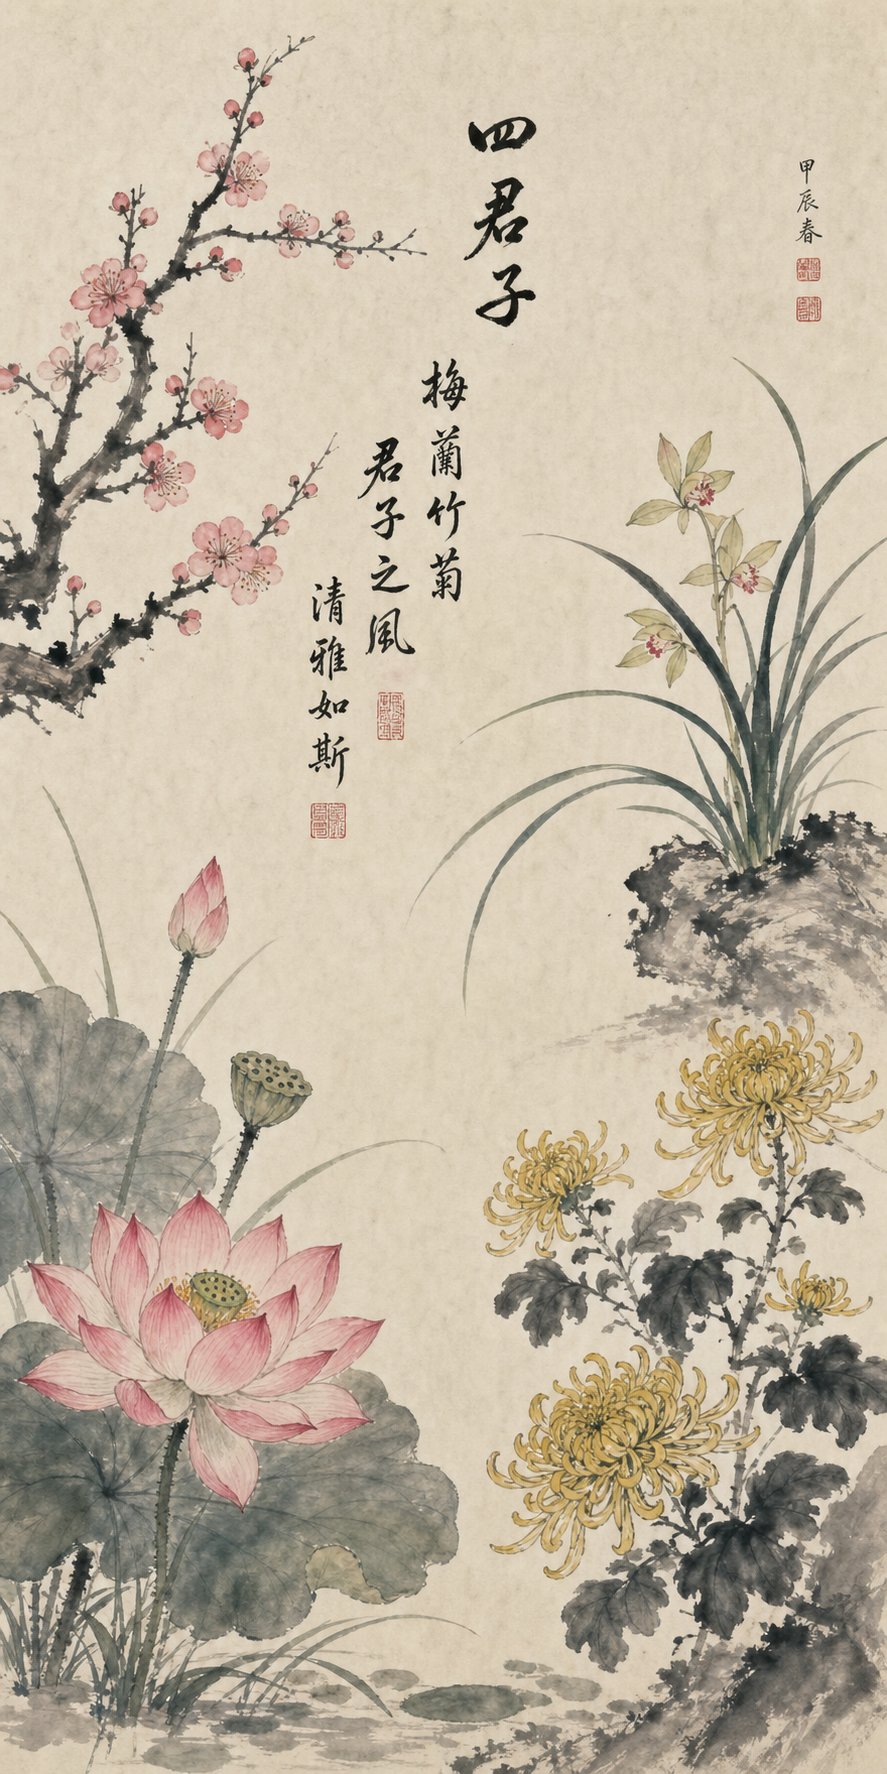 甲辰春
四君子
梅蘭竹菊
君子之風
清雅如斯